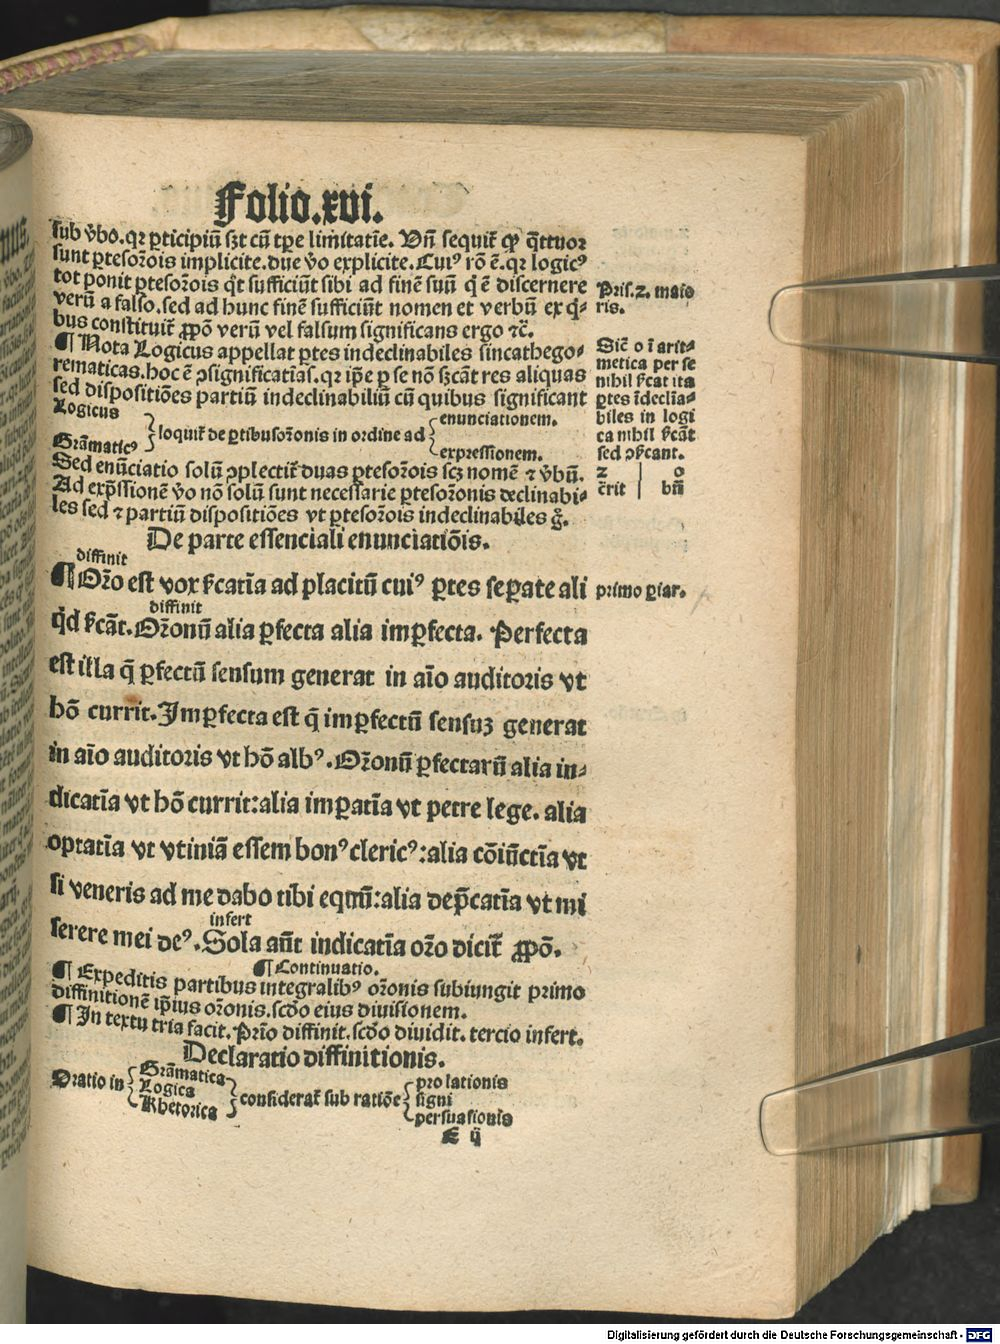 Folio.xvi.
sub v̄bo.qꝛ ꝑticipiū sꝫt cū tꝑe limitatiē. Vñ sequit᷑ ꝙ q̄ttuoꝛ
sunt ꝑtesoꝛ̄ois implicite.due v̄o explicite.Cuiꝰ rō ē.qꝛ logicꝰ
tot ponit ꝑtesoꝛ̄ois qͥt sufficiūt sibi ad finē suū q̇ ē discernere
verū a falso.sed ad hunc finē sufficiūt nomen et verbū ex q̇⸗
bus constituit᷑ ꝓpō verū vel falsum significans ergo ⁊c̄.
Pris.2. maio
ris.
¶ Nota Logicus appellat ꝑtes indeclinabiles sincathego⸗
rematicas.hoc ē ꝯsignificatīas.qꝛ ip̄e ꝑ se nō sꝫcāt res aliquas
sed dispositiōes partiū indeclinabiliū cū quibus significant
Logicus
Grāmaticꝰ
loquit᷑ de ꝑtibusoꝛ̄onis in ordine ad
enunciationem.
expressionem.
Sicē o ī arit⸗
metica per se
nihil ſ̄cat ita
ꝑtes īdeclīa⸗
biles in logi
ca nihil ſ̄cāt
sed ꝯſ̄cant.
2 | o
c̄rit | bū
Sed enūciatio solū ꝯplectit᷑ duas ꝑtesoꝛ̄ois scꝫ nomē ⁊ v̄bū.
Ad exp̄ssionē v̄o nō solū sunt necessarie ꝑtesoꝛ̄onis declinabi⸗
les sed ⁊ partiū dispositiōes vt ꝑtesoꝛ̄ois indeclinabiles ḡ.
De parte essenciali enunciatiōis.
diffinit
¶ Oꝛ̄o est vox ſ̄catīa ad placitū cuiꝰ ꝑtes seꝑate ali
primo ꝑiar.
diffinit
q̇d ſ̄cāt.Oꝛ̄onū alia ꝑfecta alia imꝑfecta. Perfecta
est illa q̄ ꝑfectū sensum generat in aīo auditoris vt
hō currit.Imꝑfecta est q̄ imꝑfectū sensuꝫ generat
in aīo auditoris vt hō albꝰ.Oꝛ̄onū ꝑfectarū alia in⸗
dicatīa vt hō currit:alia imꝑatīa vt petre lege. alia
optatīa vt vtinā essem bonꝰ clericꝰ:alia cōiūctīa vt
si veneris ad me dabo tibi equū:alia dep̄catīa vt mi
infert
serere mei deꝰ.Sola aūt indicatīa oꝛ̄o dicit᷑ ꝓpō.
¶ Continuatio.
¶ Expeditis partibus integralibꝰ oꝛ̄onis subiungit primo
diffinitionē ip̄ius oꝛ̄onis.scd̄o eius diuisionem.
¶ In textu tria facit.Prīo diffinit.scd̄o diuidit. tercio infert.
Declaratio diffinitionis.
Oratio in
Grāmatica
Logica
Rhetorica
considerat᷑ sub ratiōe
prolationis
signi
persuasionis
E ij
Digitalisierung gefördert durch die Deutsche Forschungsgemeinschaft - DFG